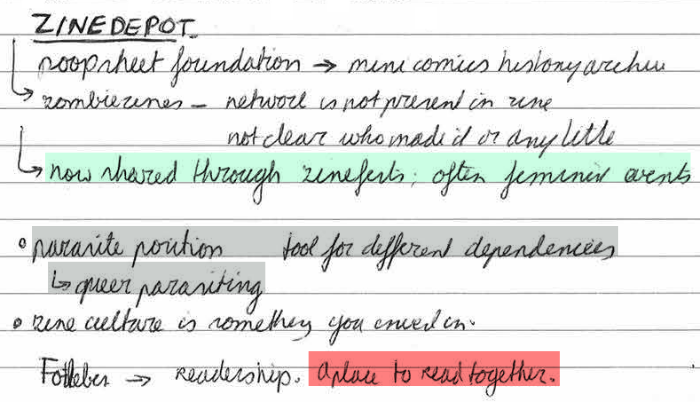 ZINEDEPOT
poopsheet foundation → mini comics history archive
↳ zombiezines – network is not present in zine
not clear who made it or any little
↳ now shared through zinefests; often feminist events
• parasite position tool for different dependencies
↳ queer parasiting
• zine culture is something you in.
→ readership. A place to read together.